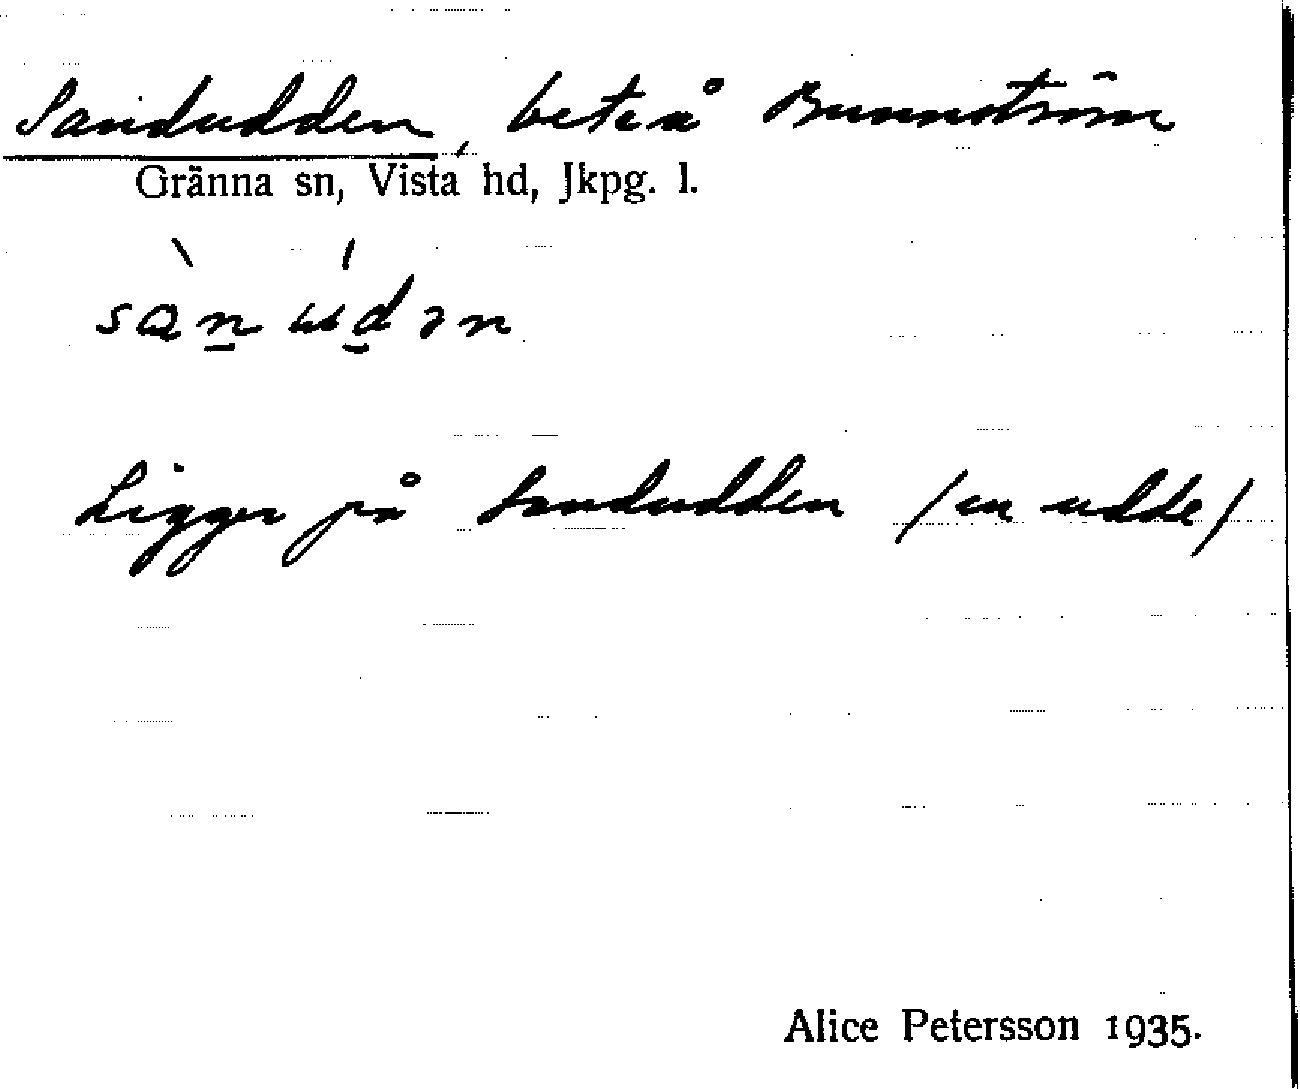 Sandudden, bete å Bunnström
Gränna sn, Vista hd, Jkpg. l.
sàn údən
Ligger på Sandudden /en udde/
Alice Petersson 1935.